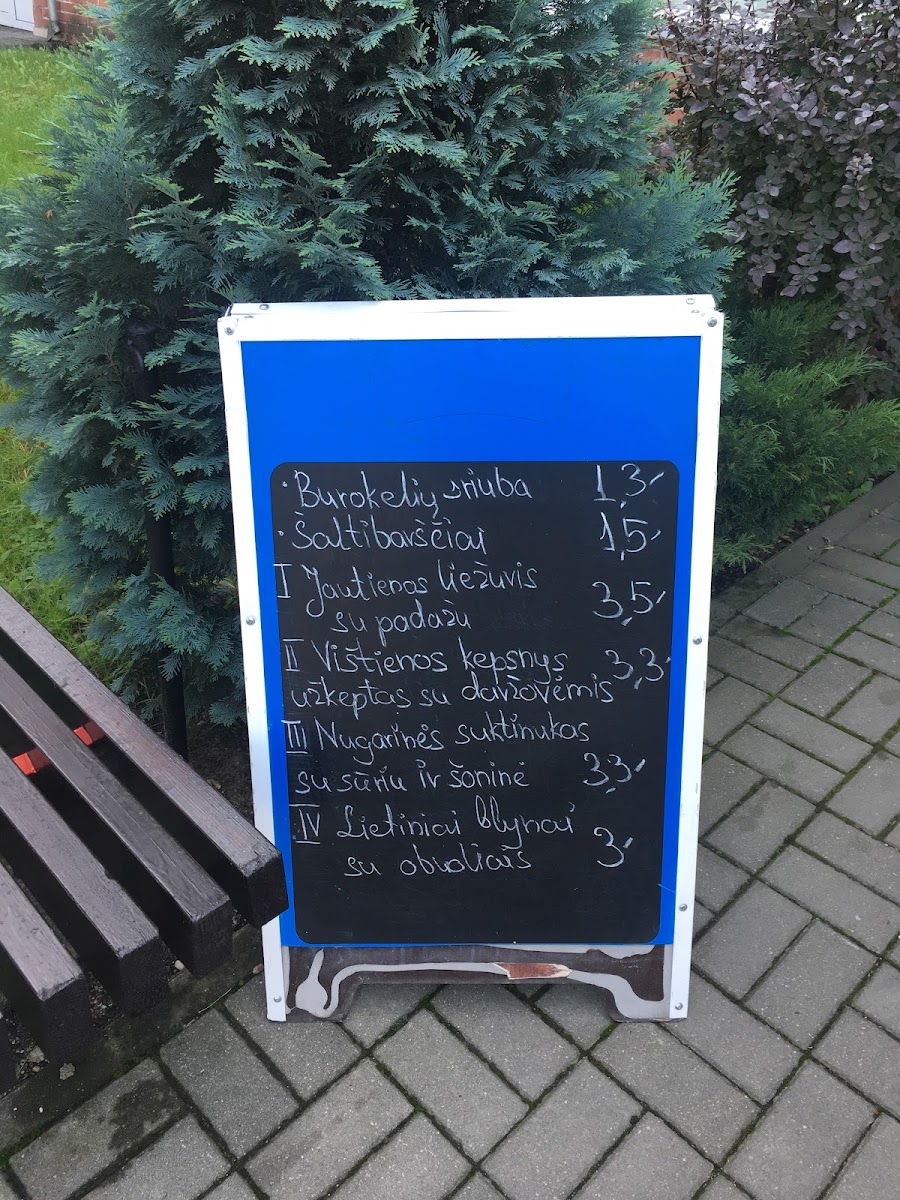 · Burokelių sriuba 1,3,-
· Šaltibarščiai 1,5,-
I Jautienos liežuvis
su padažu 3,5,-
II Vištienos kepsnys 3,3,-
užkeptas su daržovėmis
III Nugarinės suktinukas
su sūriu ir šonine 3,3,-
IV Lietiniai blynai
su obuoliais 3,-